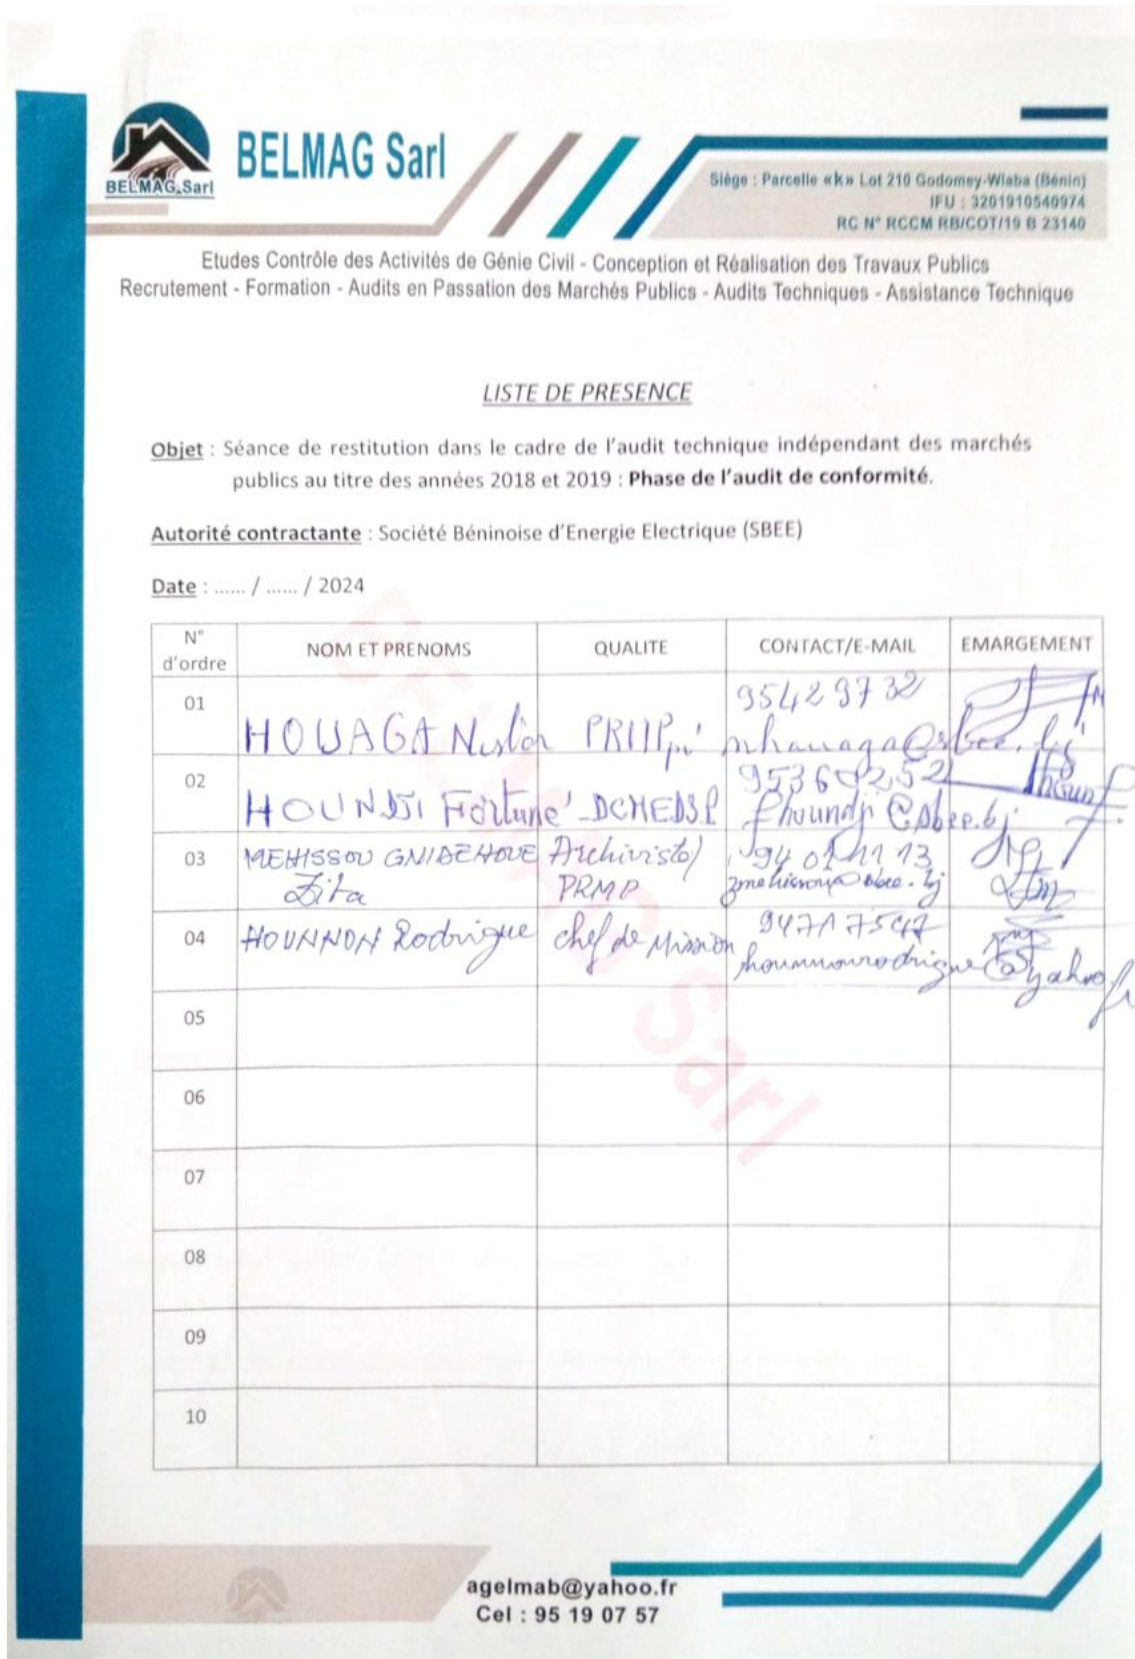 BELMAG Sarl
BELMAG Sarl
Siège : Parcelle «k» Lot 210 Godomey-Wlaba (Bénin)
IFU : 3201910540974
RC N° RCCM RB/COT/19 B 23140
Etudes Contrôle des Activités de Génie Civil - Conception et Réalisation des Travaux Publics
Recrutement - Formation - Audits en Passation des Marchés Publics - Audits Techniques - Assistance Technique
LISTE DE PRESENCE
Objet : Séance de restitution dans le cadre de l'audit technique indépendant des marchés
publics au titre des années 2018 et 2019 : Phase de l'audit de conformité.
Autorité contractante : Société Béninoise d'Energie Electrique (SBEE)
Date : ...... / ...... / 2024
N° d'ordre NOM ET PRENOMS QUALITE CONTACT/E-MAIL EMARGEMENT
01 HOUAGA Nestor 95429732
02 HOUNDJI Fortuné 95360252
fhoundji@sbee.bj
03 MEHISSOU GNIDEHOUE Archiviste/ 94 01 11 13
Zita PRMP
04 HOUNNON Rodrigue chef de Mission
05
06
07
08
09
10
BELMAG Sarl
agelmab@yahoo.fr
Cel : 95 19 07 57